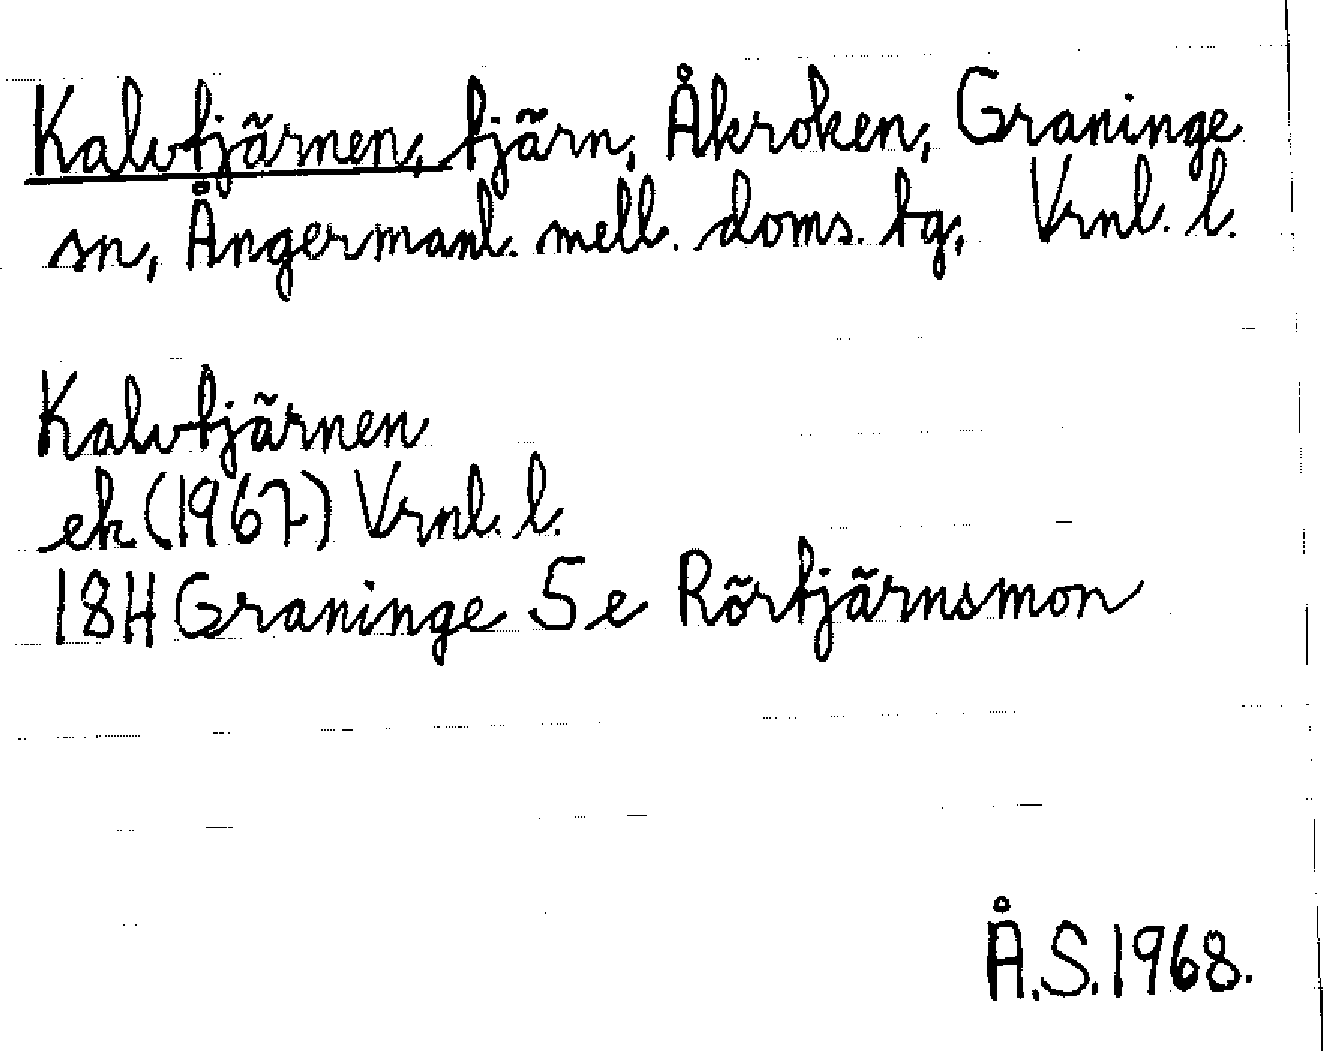 Kalvtjärnen, tjärn, Åkroken, Graninge
sn, Ångermanl. mell. doms. tg, Vrnl. l.
Kalvtjärnen
ek (1967) Vrnl. l.
18H Graninge 5e Rörtjärnsmon
Å.S. 1968.